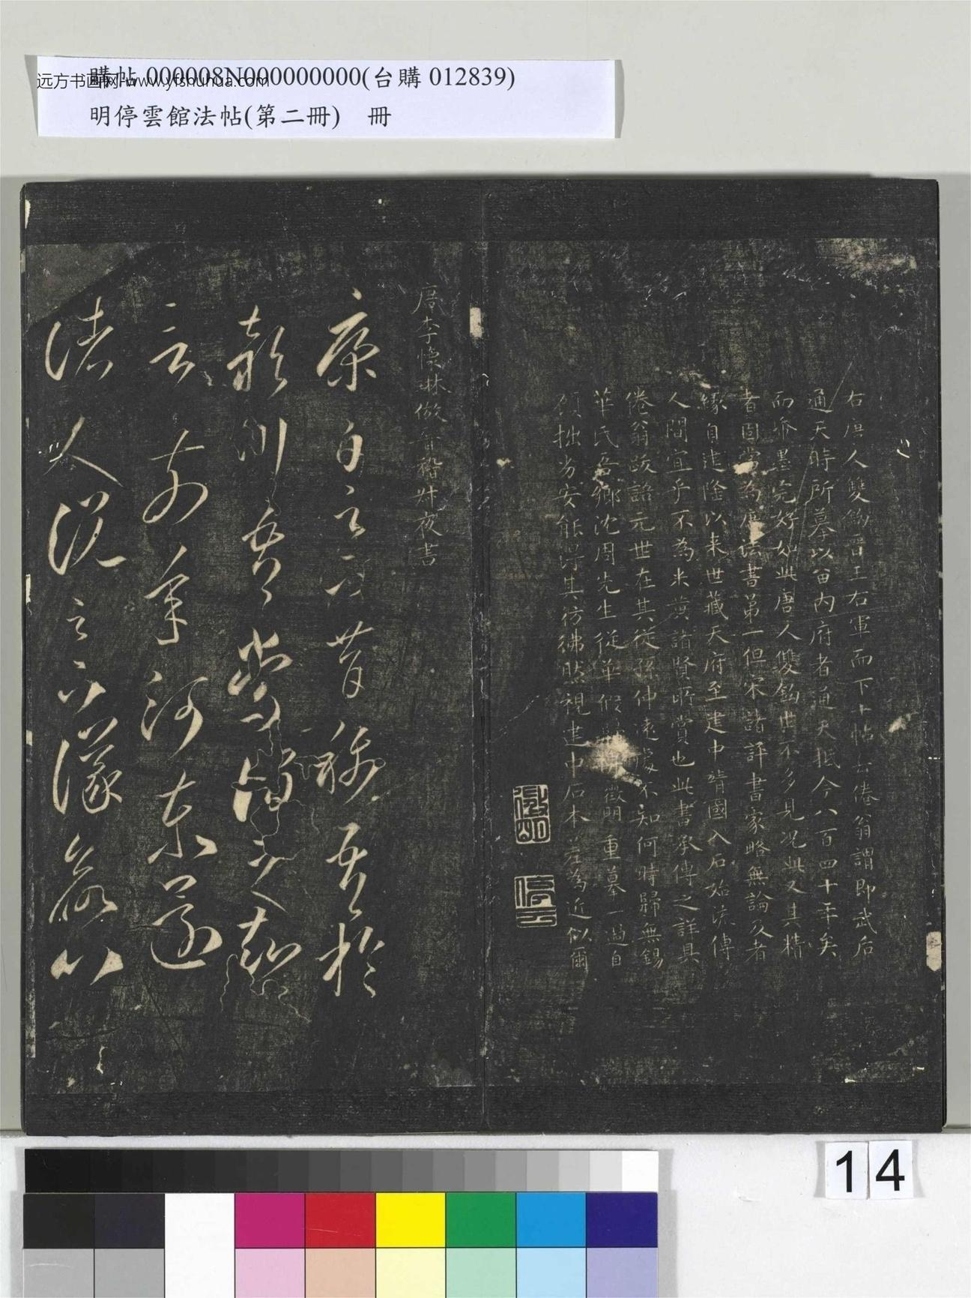 購帖 000008N000000000(台購 012839)
远方书画网 www.yfshuhua.com
明停雲館法帖(第二冊) 冊
右唐人雙鉤晉王右軍而下十帖岳倦翁謂即武后
通天時所摹以留內府者通天抵今八百四十年矣
而紙墨完好如此唐人雙鉤世不多見況此又其精
者固當為唐法書第一但宋諸評書家略無論及者
緣自建隆以來世藏天府至建中靖國入石始流傳
人間宜乎不為米黃諸賢所賞也此書承傳之詳具
倦翁跋語元世在其從孫仲遠處不知何時歸無錫
華氏吾鄉沈周先生從華假 徵明重摹一過自
顧拙劣安能得其彷彿然視建中石本差為近似爾
徵明
停雲
唐李懷琳倣晉嵇叔夜書
康白足下昔稱吾於
潁川吾嘗謂之知
言前年河東還
諸人說足下議欲以
14